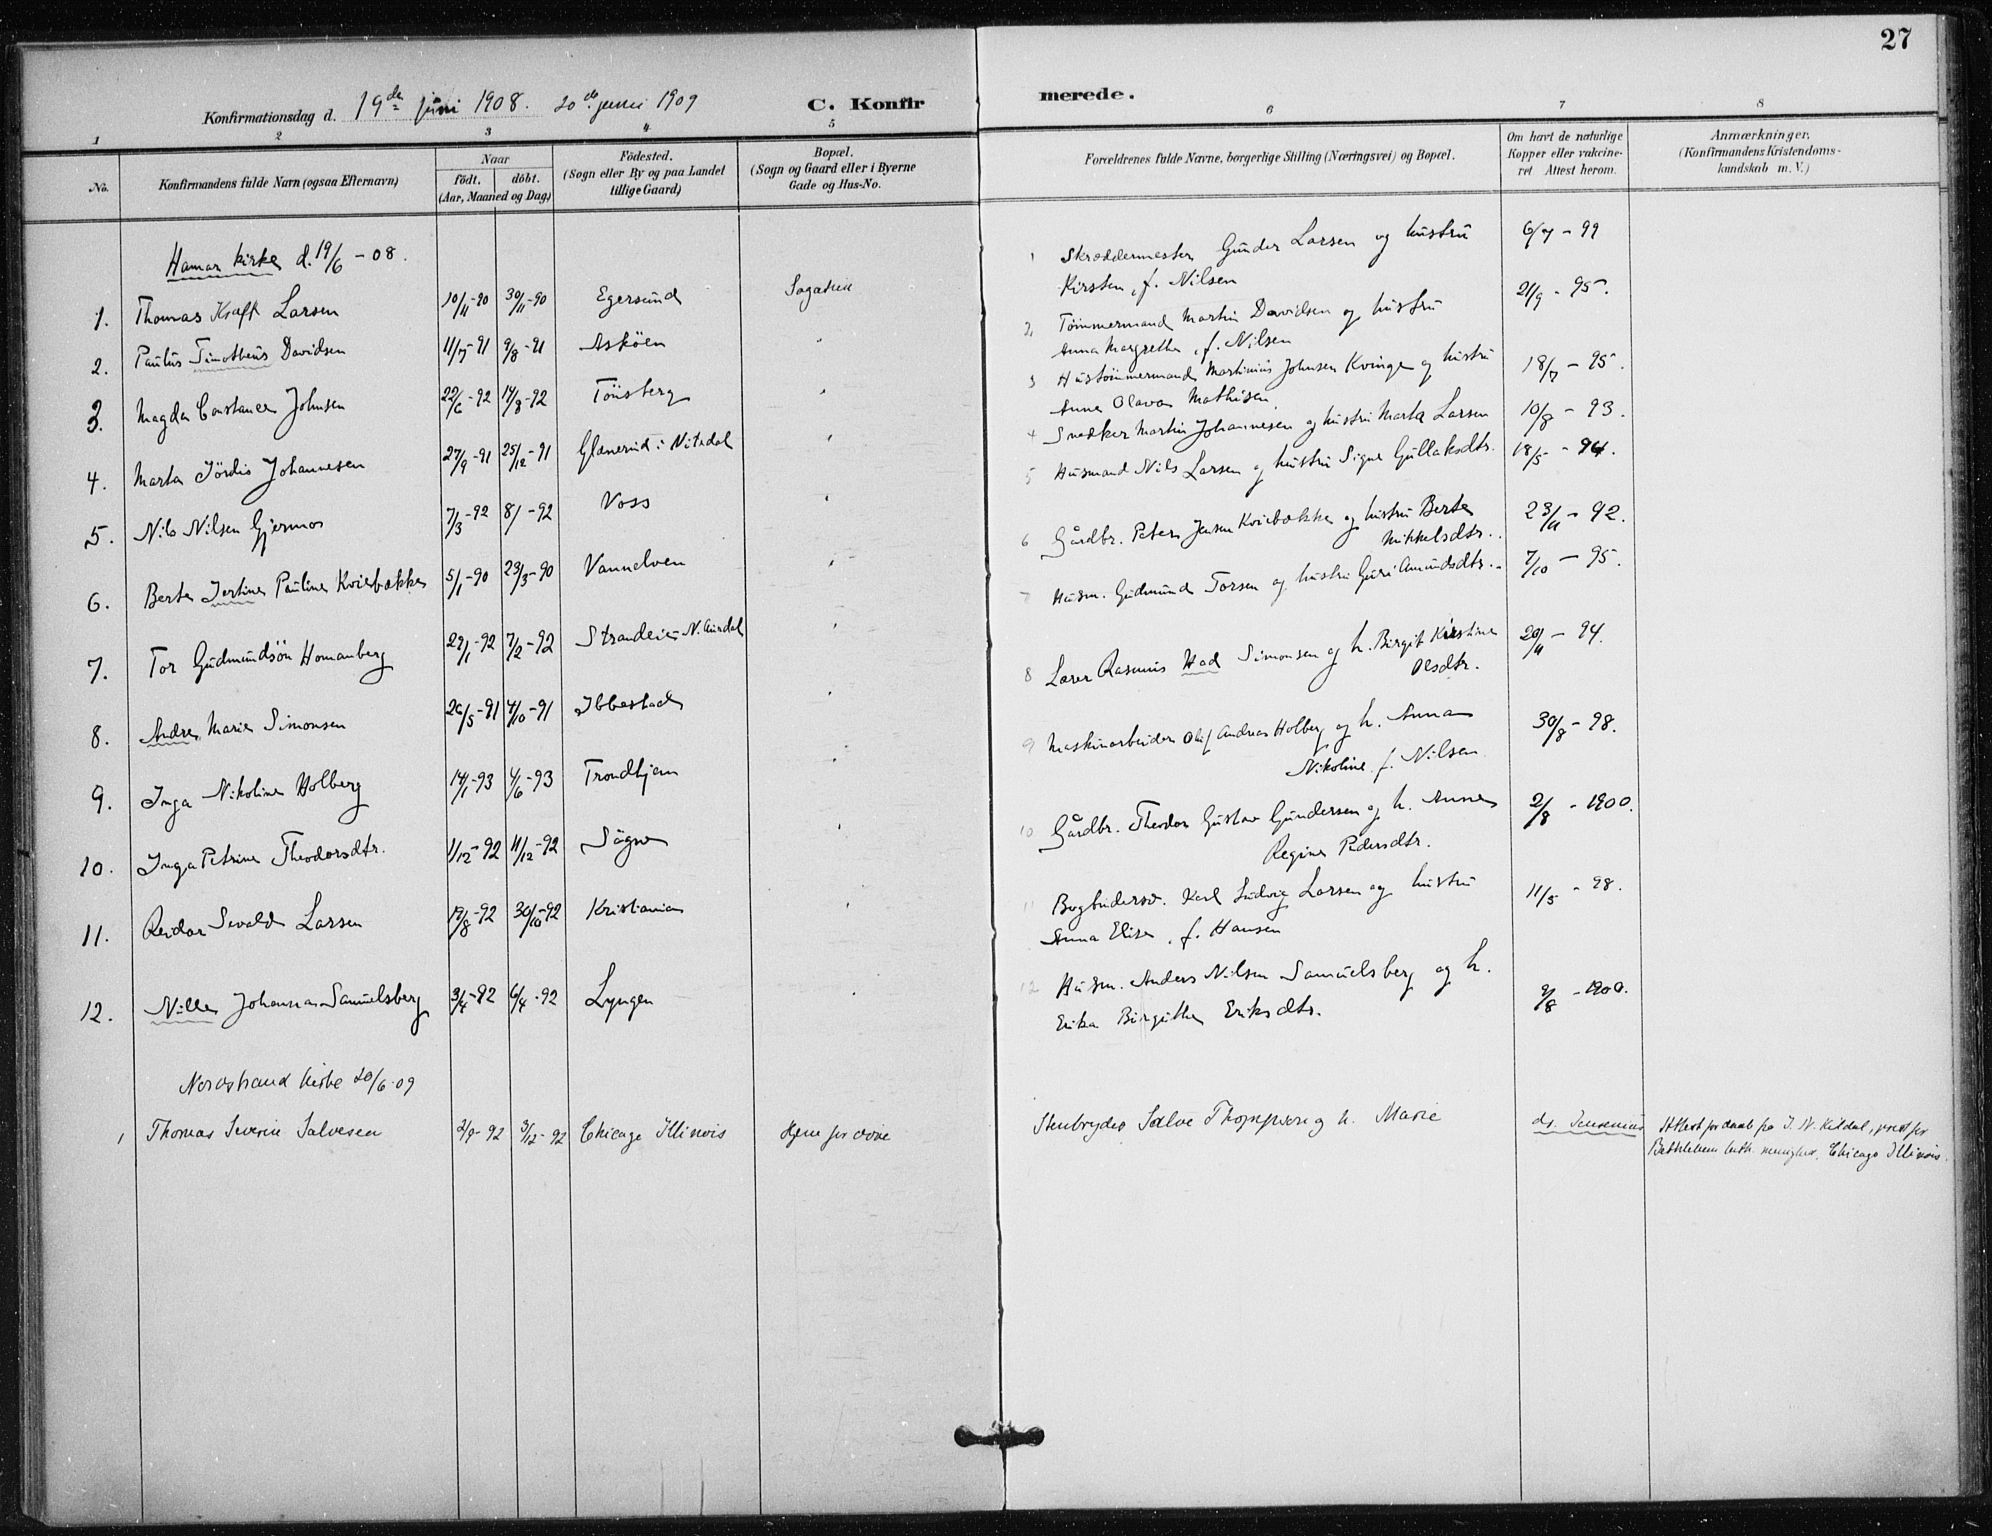 27
Konfirmationsdag d. 19de juni 1908. 20de juni 1909
C. Konfirmerede.
1 2 3 4 5 6 7 8
No.
Konfirmandens fulde Navn (ogsaa Efternavn)
Naar
födt. döbt.
(Aar, Maaned og Dag)
Födested.
(Sogn eller By og paa Landet
tillige Gaard)
Bopæl.
(Sogn og Gaard eller i Byerne
Gade og Hus-No.
Forældrenes fulde Navne, borgerlige Stilling (Næringsvei) og Bopæl.
Om havt de naturlige
Kopper eller vakcine-
ret Attest herom.
Anmærkninger.
(Konfirmandens Kristendoms-
kundskab m. V.)
Hamar kirke d. 19/6 - 08.
1. Thomas Kraft Larsen 10/11-90 30/11-90 Egersund
1 Skræddermester Gunder Larsen og hustru 6/7 - 99
Kirsten, f. Nilsen
2. Paulus Timotheus Davidsen 11/7-91 9/8-91 Asköen "
2 Tömmermand Martin Davidsen og hustru 21/9 - 95.
Anna Margrethe, f. Nilsen
3. Magda Constance Johnsen 22/6-92 14/8-92 Tönsberg "
3 Hustömmermand Martinius Johnsen Kvinge og hustru 18/7 - 95.
Anne Olava Mathisen.
4. Marta Jördis Johannesen 27/9-91 25/12-91 i Nitedal "
4 Snedker Martin Johannesen og hustru Marta Larsen 10/8 - 93.
5. Nils Nilsen Gjermo 7/3-92 8/ -92 Voss "
5 Husmand Nils Larsen og hustru Signe Gullaksdtr. 18/5 - 94.
6. Berte Jertine Pauline Kviebække 5/1-90 23/3-90 Vannelven "
6 Gårdbr. Peter Jensen Kviebække og hustru Berte 23/11 - 92.
Mikkelsdtr.
7. Tor Gudmundsön Homanberg 29/1-92 7/2-92 N. Aurdal "
7 Husm. Gudmund Torsen og hustru Guri Amundsdtr. 7/10 - 95.
8. Andre Marie Simonsen 26/5-91 4/10-91 Ibbestad "
8 Lærer Rasmus Had Simonsen og h. Birgit Kirstine 20/11 - 94.
Olsdtr.
9. Inga Nikoline Holberg 14/1-93 4/6-93 Trondhjem "
9 Maskinarbeider Oluf Andreas Holberg og h. Anna 30/8 - 98.
Nikoline f. Nilsen
10. Inga Petrine Theodorsdtr. 1/12-92 11/12-92 Sögne "
10 Gårdbr. Theodor Gustav Gundersen og h. Anne 2/8 - 1900.
Regine Pedersdtr.
11. Reidar Sevald Larsen 19/8-92 30/10-92 Kristiania "
11 Bogbindersv. Karl Ludvig Larsen og hustru 11/5 - 98.
Anna Elise, f. Hansen
12. Nille Johanna Samuelsberg 3/4-92 6/4-92 Lyngen "
12 Husm. Anders Nilsen Samuelsberg og h. 9/8 - 1900.
Erika Birgitte Eriksdtr.
Nordstrand kirke 20/6 09
1 Thomas Severin Salvesen 2/9-92 3/12-92 Chicago Illinois Hjem for döve
Stenbryder Salve Thompson og h. Marie dr. Attest for daab fra J. N. Kildal, prest for
Bethlehem luth. menighed, Chicago Illinois.